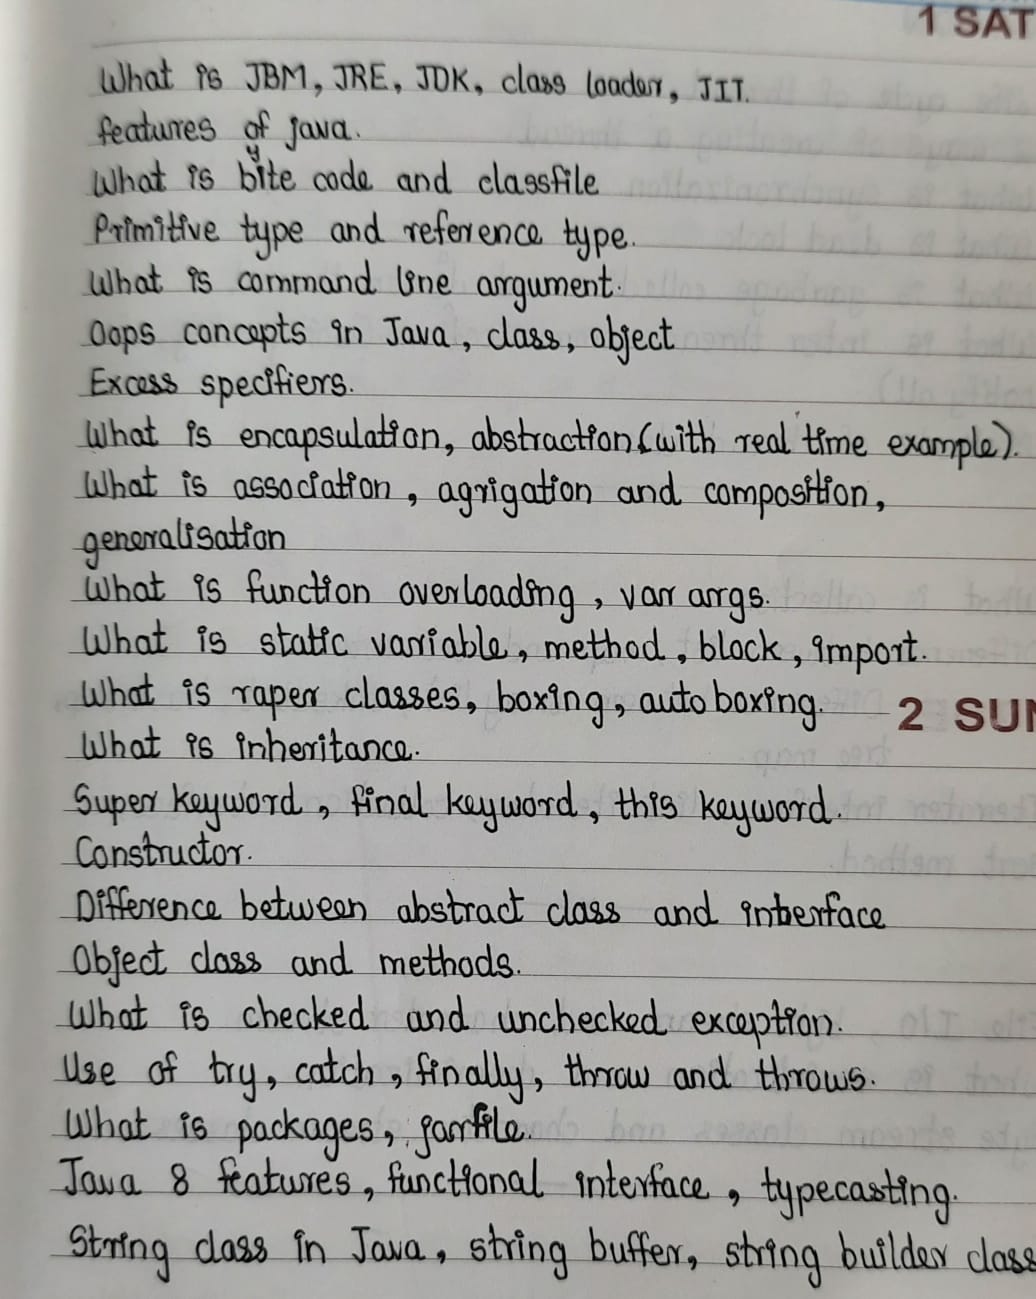 1 SAT
What is JBM, JRE, JDK, class loader, JIT.
features of java.
y
What is bite code and classfile
Primitive type and reference type.
What is command line argument.
Oops concapts in Java, class, object
Excess specifiers.
What is encapsulation, abstraction (with real time example).
What is association, agrigation and composition,
generalisation
What is function overloading, var args.
What is static variable, method, block, import.
What is raper classes, boxing, auto boxing.
2 SUN
What is inheritance.
Super keyword, final keyword, this keyword.
Constructor.
Difference between abstract class and interface
Object class and methods.
What is checked and unchecked exception.
Use of try, catch, finally, throw and throws.
What is packages, jarfile.
Java 8 features, functional interface, typecasting.
String class in Java, string buffer, string builder class